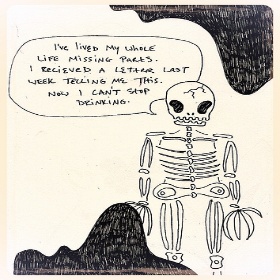 I'VE LIVED MY WHOLE
LIFE MISSING PARTS.
I RECIEVED A LETTER LAST
WEEK TELLING ME THIS.
NOW I CAN'T STOP
DRINKING.